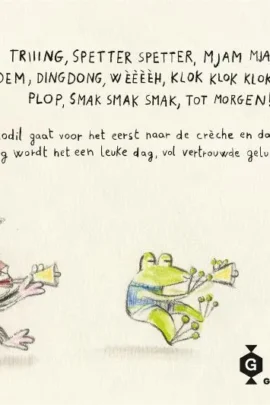 TRIIING, SPETTER SPETTER, MJAM MJA
OEM, DINGDONG, WÈÈÈÈH, KLOK KLOK KLOK
PLOP, SMAK SMAK SMAK, TOT MORGEN!
odil gaat voor het eerst naar de crèche en da
g wordt het een leuke dag, vol vertrouwde gelu
G
G